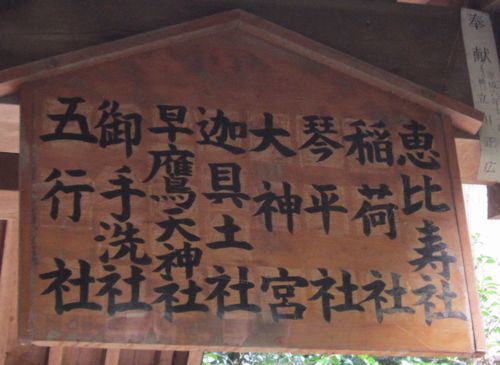 恵比寿社
稲荷社
琴平社
大神宮
迦具土社
早鷹天神社
御手洗社
五行社
奉献